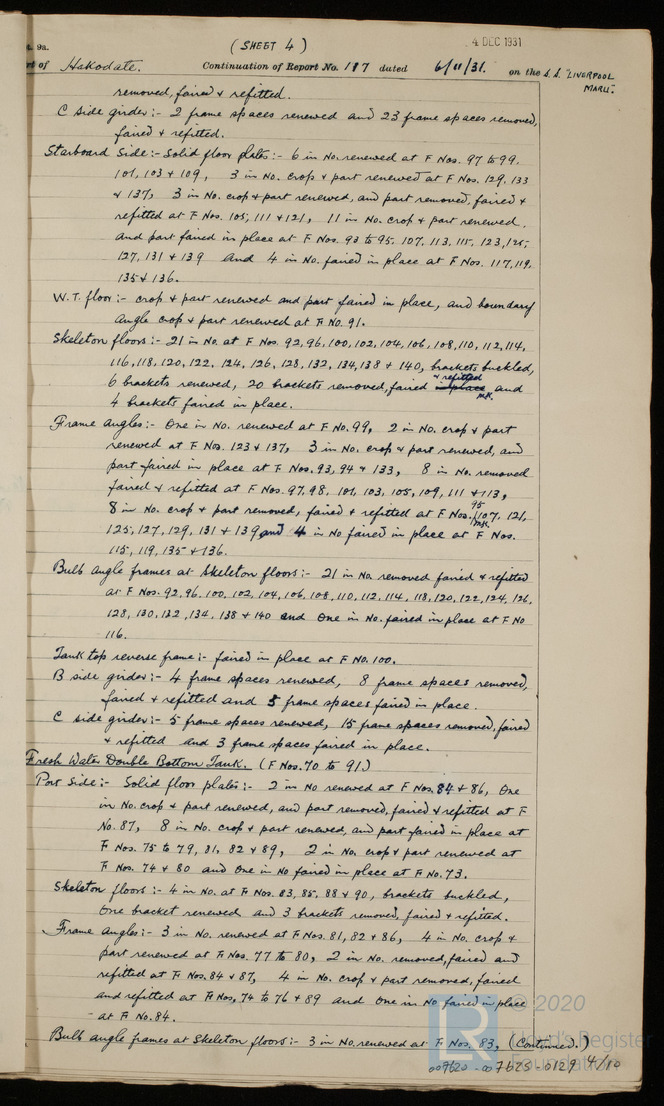 (SHEET 4)
4 DEC 1931
t. 9a.
rt of Hakodate. Continuation of Report No. 117 dated 6/11/31. on the S.S. "LIVERPOOL
MARU".
removed, faired & refitted.
C side girder:- 2 frame spaces renewed and 23 frame spaces removed,
faired & refitted.
Starboard Side:- Solid floor plates:- 6 in No. renewed at F Nos. 97 to 99,
101, 103 & 109, 3 in No. crop & part renewed at F Nos. 129, 133
& 137, 3 in No. crop & part renewed, and part removed, faired &
refitted at F Nos. 105, 111 & 121, 11 in No. crop & part renewed,
and part faired in place at F Nos. 93 to 95, 107, 113, 115, 123, 125,
127, 131 & 139 and 4 in No. faired in place at F Nos. 117, 119,
135 & 136.
W.T. floor:- crop & part renewed and part faired in place, and boundary
angle crop & part renewed at F No. 91.
Skeleton floors:- 21 in No. at F Nos. 92, 96, 100, 102, 104, 106, 108, 110, 112, 114,
116, 118, 120, 122, 124, 126, 128, 132, 134, 138 & 140, brackets buckled,
6 brackets renewed, 20 brackets removed, faired & refitted in place and
4 brackets faired in place.
Frame angles:- One in No. renewed at F No. 99, 2 in No. crop & part
renewed at F Nos. 123 & 137, 3 in No. crop & part renewed, and
part faired in place at F Nos. 93, 94 & 133, 8 in No. removed
faired & refitted at F Nos. 97, 98, 101, 103, 105, 109, 111 & 113,
8 in No. crop & part removed, faired & refitted at F Nos. 95, 107, 121,
125, 127, 129, 131 & 139 and 4 in No faired in place at F Nos.
115, 119, 135 & 136.
Bulb angle frames at Skeleton floors:- 21 in No. removed faired & refitted
at F Nos. 92, 96, 100, 102, 104, 106, 108, 110, 112, 114, 118, 120, 122, 124, 126,
128, 130, 132, 134, 138 & 140 and One in No. faired in place at F No
116.
Tank top reverse frame:- faired in place at F No. 100.
B side girder:- 4 frame spaces renewed, 8 frame spaces removed,
faired & refitted and 5 frame spaces faired in place.
C side girder:- 5 frame spaces renewed, 15 frame spaces removed, faired
& refitted and 3 frame spaces faired in place.
Fresh Water Double Bottom Tank. (F Nos. 70 to 91.)
Port Side:- Solid floor plates:- 2 in No renewed at F Nos. 84 & 86, One
in No. crop & part renewed, and part removed, faired & refitted at F
No. 87, 8 in No. crop & part renewed, and part faired in place at
F Nos. 75 to 79, 81, 82 & 89, 2 in No. crop & part renewed at
F Nos. 74 & 80 and One in No faired in place at F No. 73.
Skeleton floors:- 4 in No. at F Nos. 83, 85, 88 & 90, brackets buckled,
One bracket renewed and 3 brackets removed, faired & refitted.
Frame angles:- 3 in No. renewed at F Nos. 81, 82 & 86, 4 in No. crop &
part renewed at F Nos. 77 to 80, 2 in No. removed, faired and
refitted at F Nos. 84 & 87, 4 in No. crop & part removed, faired
and refitted at F Nos. 74 to 76 & 89 and One in No faired in place
at F No. 84.
Bulb angle frames at Skeleton floors:- 3 in No. renewed at F Nos. 83, (Continued.)
LR © 2020
Lloyd's Register
Foundation
007620-007625-0129 4/10